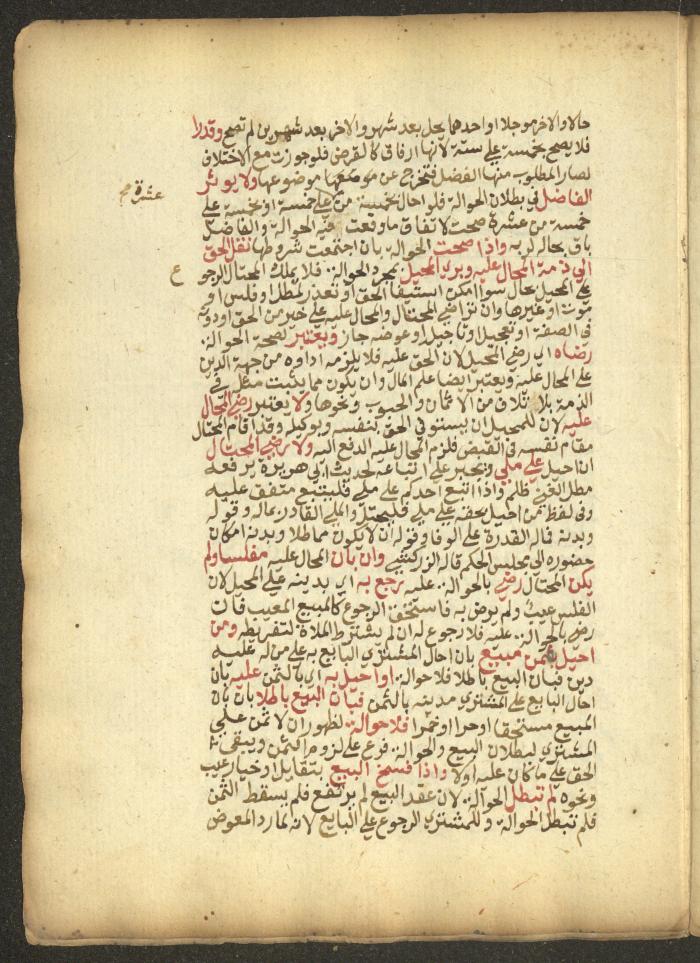 حالا والاخر موجلا او احدهما يحل بعد شهر والاخر بعد شهرين لم تصح وقدرا
فلا يصح بخمسة علي ستة لانها ارفاق كالقرض فلو جوزت مع الاختلاف
لصار المطلوب منها الفضل فتخرج عن موضعها موضوعها ولا يوثر
الفاضل في بطلان الحوالة فلو احال بخمسة من علي خمسة او بخمسة علي
عشرة صح
خمسة من عشرة صحت لاتفاق ما وقعت فيه الحوالة والفاضل
باق بحاله لربه واذا صحت الحوالة بان اجتمعت شروطها نقل الحق
الي ذمة المحال عليه وبري المحيل بمجرد الحوالة فلا يملك المحتال الرجو
ع
علي المحيل بحال سوا امكن استيفا الحق او تعذر لمطل او فلس او
موت او غيرها وان تراضي المحتال والمحال عليه علي خير من الحق او دونه
في الصفة او تعجيل او تاجيل او عوضه جاز ويعتبر لصحة الحوالة
رضاه اي رضي المحيل لان الحق عليه فلا يلزمه اداوه من جهة الدين
علي المحال عليه ويعتبر ايضا علم المال وان يكون مما يثبت مثله في
الذمة بالاتلاف من الاثمان والحبوب ونحوها ولا يعتبر رضي المحال
عليه لان للمحيل ان يستوفي الحق بنفسه وبوكيله وقد اقام المحتال
مقام نفسه في القبض فلزم المحال عليه الدفع اليه ولا رضي المحتال
ان احيل علي ملي ويجبر علي اتباعه لحديث ابي هريرة يرفعه
مطل الغني ظلم واذا اتبع احدكم علي ملي فليتبع متفق عليه
وفي لفظ من احيل بحقه علي ملي فليحتل والملي القادر بماله وقوله
وبدنه فماله القدرة علي الوفا وقوله ان لا يكون مماطلا وبدنه امكان
حضوره الي مجلس الحكم قاله الزركشي وان بان المحال عليه مفلسا ولم
يكن المحتال رضي بالحوالة عليه رجع به اي بدينه علي المحيل لان
الفلس عيب ولم يرض به فاستحق الرجوع كالمبيع المعيب فان
رضي بالحوالة عليه فلا رجوع له ان لم يشترط الملاة لتفريطه ومن
احيل بثمن مبيع بان احال المشتري البايع به علي من له عليه
دين فبان البيع باطلا فلا حوالة او احيل به اي بالثمن عليه بان
احال البايع علي المشتري مدينه بالثمن فبان البيع باطلا بان بان
المبيع مستحقا او حرا او خمرا فلا حوالة لظهور ان لا ثمن علي
المشتري لبطلان البيع والحوالة فرع علي لزوم الثمن ويبقي
الحق علي ما كان عليه اولا واذا فسخ البيع بتقايل او خيار عيب
ونحوه لم تبطل الحوالة لان عقد البيع لم يرتفع فلم يسقط الثمن
فلم تبطل الحوالة وللمشتري الرجوع علي البايع لانه لما رد المعوض